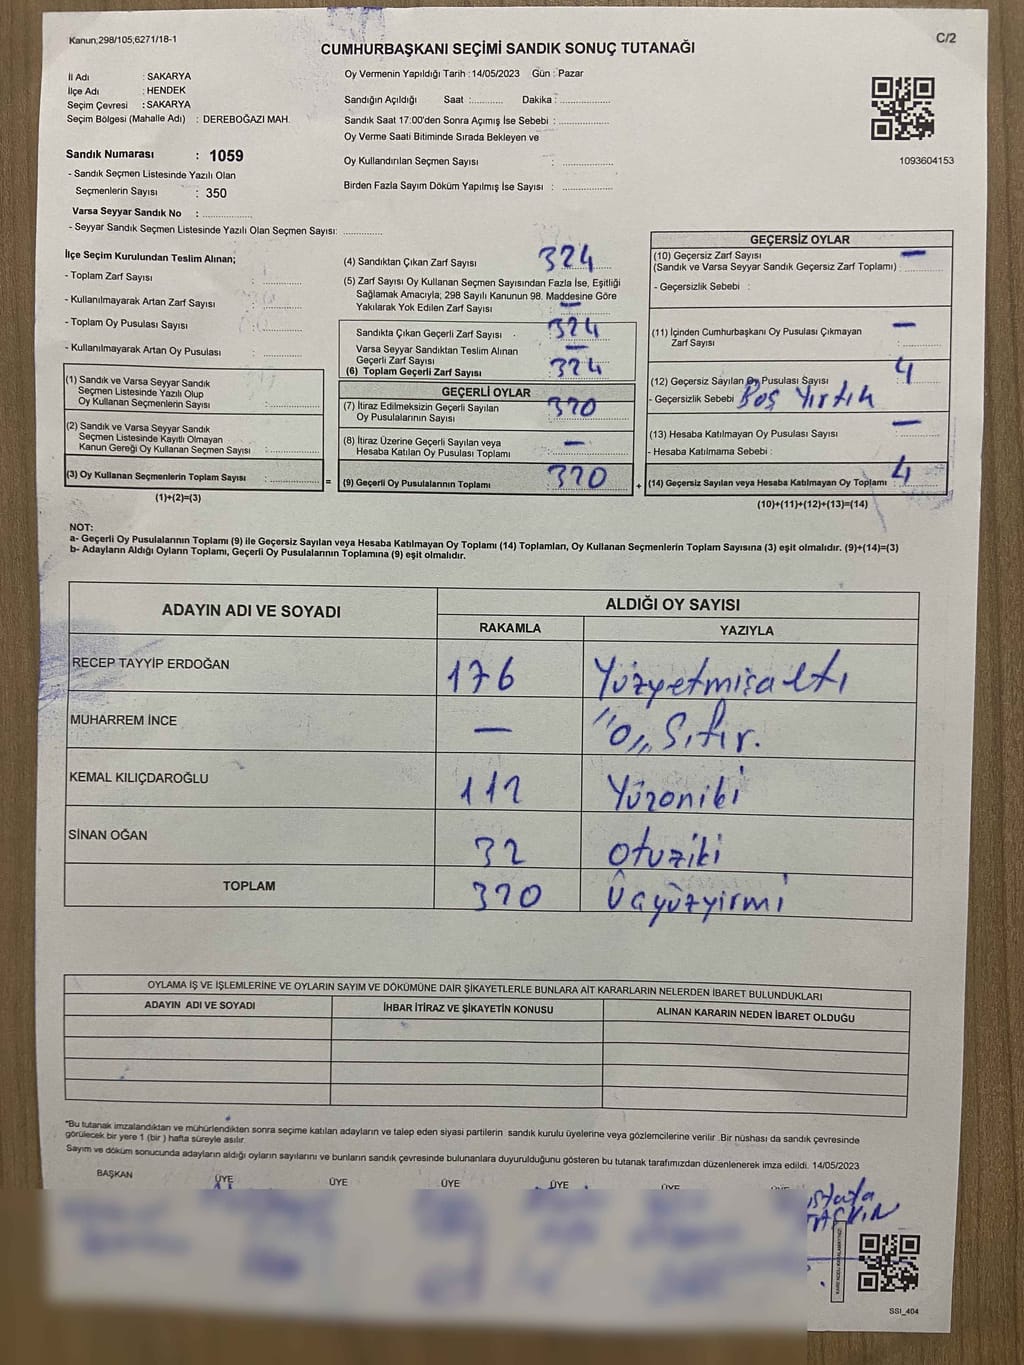 Kanun;298/105,6271/18-1
C/2
CUMHURBAŞKANI SEÇİMİ SANDIK SONUÇ TUTANAĞI
İl Adı : SAKARYA
İlçe Adı : HENDEK
Seçim Çevresi : SAKARYA
Seçim Bölgesi (Mahalle Adı) : DEREBOĞAZI MAH.
Sandık Numarası : 1059
- Sandık Seçmen Listesinde Yazılı Olan
Seçmenlerin Sayısı : 350
Varsa Seyyar Sandık No : ..............
- Seyyar Sandık Seçmen Listesinde Yazılı Olan Seçmen Sayısı: ............
Oy Vermenin Yapıldığı Tarih : 14/05/2023 Gün : Pazar
Sandığın Açıldığı Saat :........... Dakika : ..............
Sandık Saat 17:00'den Sonra Açımış İse Sebebi : ..............
Oy Verme Saati Bitiminde Sırada Bekleyen ve
Oy Kullandırılan Seçmen Sayısı : ..............
Birden Fazla Sayım Döküm Yapılmış İse Sayısı : ..............
1093604153
İlçe Seçim Kurulundan Teslim Alınan;
- Toplam Zarf Sayısı : ............
- Kullanılmayarak Artan Zarf Sayısı : ............
- Toplam Oy Pusulası Sayısı : ............
- Kullanılmayarak Artan Oy Pusulası : ............
(1) Sandık ve Varsa Seyyar Sandık
Seçmen Listesinde Yazılı Olup
Oy Kullanan Seçmenlerin Sayısı : ............
(2) Sandık ve Varsa Seyyar Sandık
Seçmen Listesinde Kayıtlı Olmayan
Kanun Gereği Oy Kullanan Seçmen Sayısı : ............
(3) Oy Kullanan Seçmenlerin Toplam Sayısı : ............ =
(1)+(2)=(3)
(4) Sandıktan Çıkan Zarf Sayısı : 324
(5) Zarf Sayısı Oy Kullanan Seçmen Sayısından Fazla İse, Eşitliği
Sağlamak Amacıyla; 298 Sayılı Kanunun 98. Maddesine Göre
Yakılarak Yok Edilen Zarf Sayısı : —
Sandıkta Çıkan Geçerli Zarf Sayısı : 324
Varsa Seyyar Sandıktan Teslim Alınan
Geçerli Zarf Sayısı —
(6) Toplam Geçerli Zarf Sayısı : 324
GEÇERLİ OYLAR
(7) İtiraz Edilmeksizin Geçerli Sayılan : 320
Oy Pusulalarının Sayısı
(8) İtiraz Üzerine Geçerli Sayılan veya : —
Hesaba Katılan Oy Pusulası Toplamı
(9) Geçerli Oy Pusulalarının Toplamı : 320 +
GEÇERSİZ OYLAR
(10) Geçersiz Zarf Sayısı —
(Sandık ve Varsa Seyyar Sandık Geçersiz Zarf Toplamı) :
- Geçersizlik Sebebi :
(11) İçinden Cumhurbaşkanı Oy Pusulası Çıkmayan —
Zarf Sayısı :
(12) Geçersiz Sayılan Oy Pusulası Sayısı : 4
- Geçersizlik Sebebi : Boş Yırtık
(13) Hesaba Katılmayan Oy Pusulası Sayısı : —
- Hesaba Katılmama Sebebi :
(14) Geçersiz Sayılan veya Hesaba Katılmayan Oy Toplamı : 4
(10)+(11)+(12)+(13)=(14)
NOT:
a- Geçerli Oy Pusulalarının Toplamı (9) ile Geçersiz Sayılan veya Hesaba Katılmayan Oy Toplamı (14) Toplamları, Oy Kullanan Seçmenlerin Toplam Sayısına (3) eşit olmalıdır. (9)+(14)=(3)
b- Adayların Aldığı Oyların Toplamı, Geçerli Oy Pusulalarının Toplamına (9) eşit olmalıdır.
ADAYIN ADI VE SOYADI ALDIĞI OY SAYISI
RAKAMLA YAZIYLA
RECEP TAYYİP ERDOĞAN 176 Yüzyetmişaltı
MUHARREM İNCE — "0„ Sıfır.
KEMAL KILIÇDAROĞLU 112 Yüzoniki
SİNAN OĞAN 32 otuziki
TOPLAM 320 Üçyüzyirmi
OYLAMA İŞ VE İŞLEMLERİNE VE OYLARIN SAYIM VE DÖKÜMÜNE DAİR ŞİKAYETLERLE BUNLARA AİT KARARLARIN NELERDEN İBARET BULUNDUKLARI
ADAYIN ADI VE SOYADI İHBAR İTİRAZ VE ŞİKAYETİN KONUSU ALINAN KARARIN NEDEN İBARET OLDUĞU
"Bu tutanak imzalandıktan ve mühürlendikten sonra seçime katılan adayların ve talep eden siyasi partilerin sandık kurulu üyelerine veya gözlemcilerine verilir .Bir nüshası da sandık çevresinde
görülecek bir yere 1 (bir ) hafta süreyle asılır.
Sayım ve döküm sonucunda adayların aldığı oyların sayılarını ve bunların sandık çevresinde bulunanlara duyurulduğunu gösteren bu tutanak tarafımızdan düzenlenerek imza edildi. 14/05/2023
BAŞKAN ÜYE ÜYE ÜYE ÜYE ÜYE
SSI_404